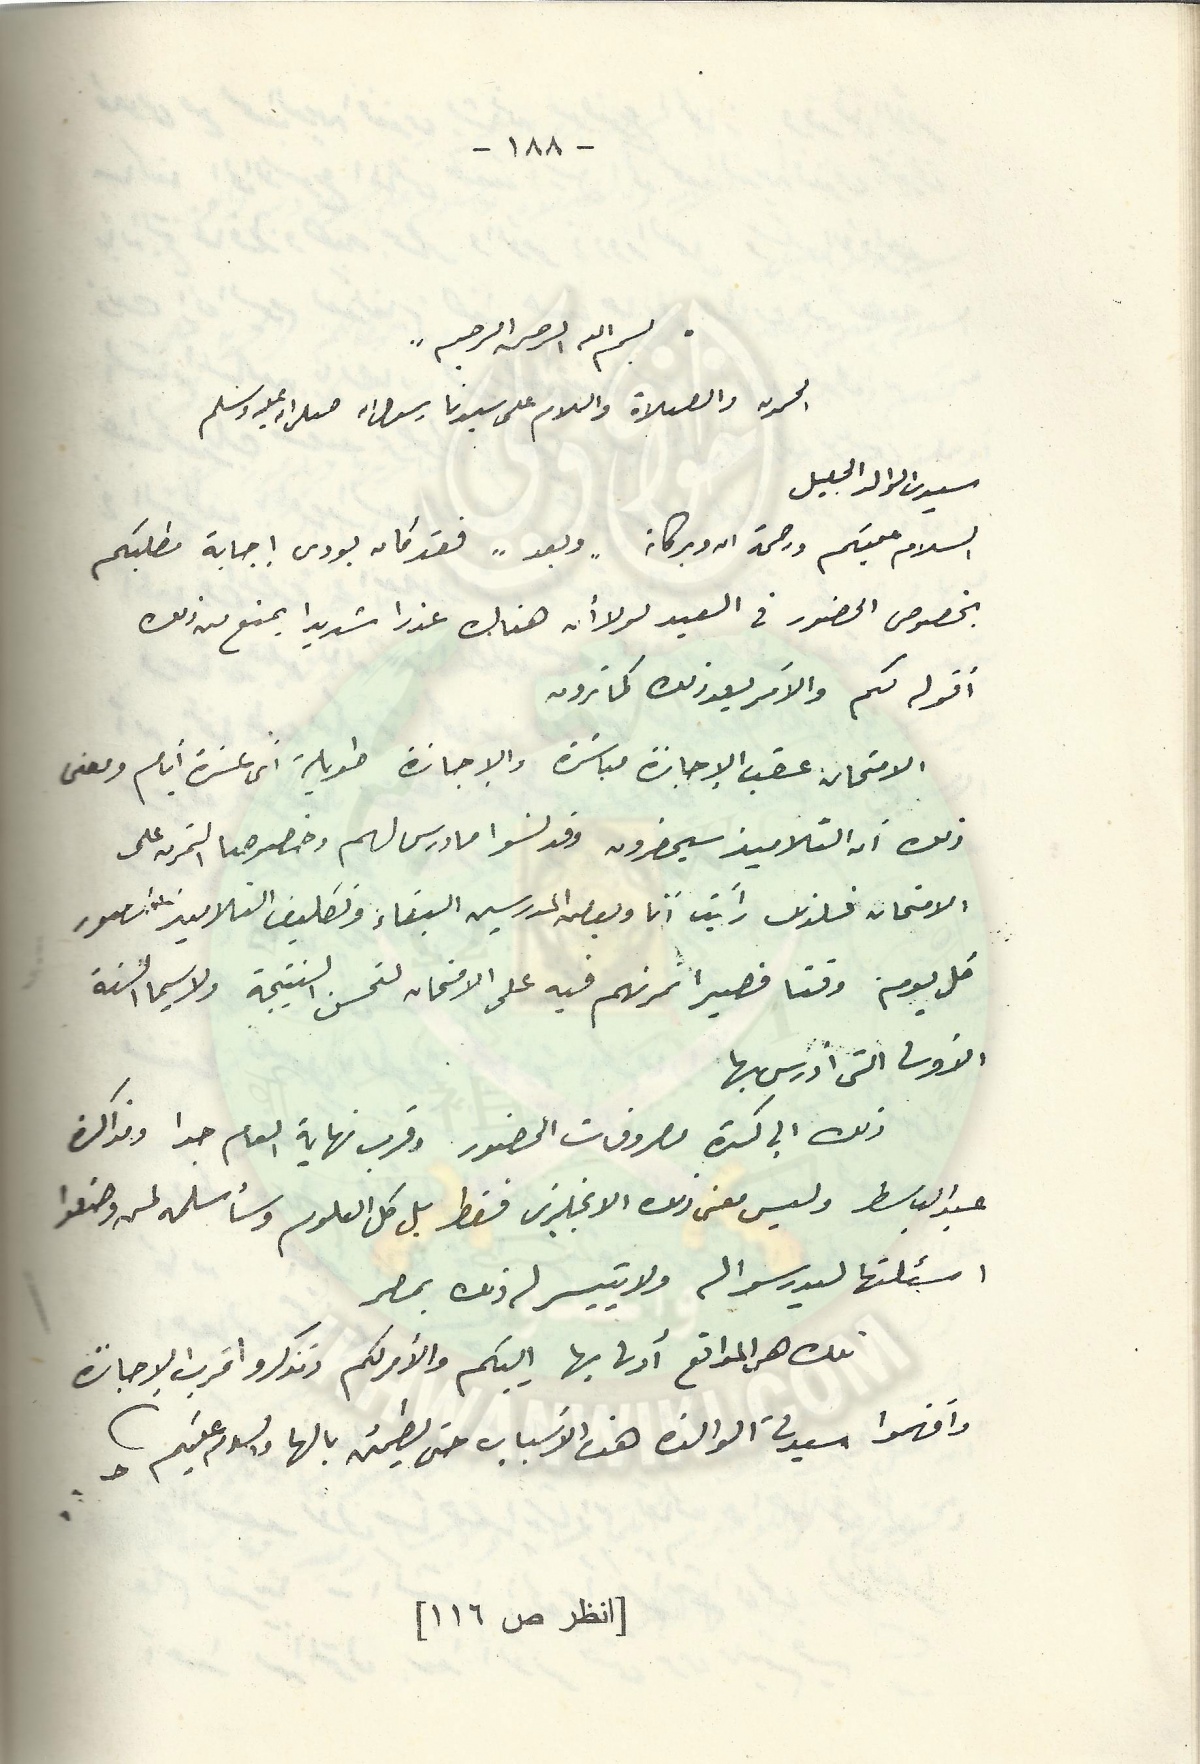 - ١٨٨ -
" بسم الله الرحمن الرحيم "
الحمد لله والصلاة والسلام على سيدنا رسول الله صلى الله عليه وسلم
سيدى الوالد الجليل
السلام عليكم ورحمة الله وبركاته " وبعد " فقد كان بودى إجابة مطلبكم
بخصوص الحضور فى العيد لولا أن هناك عذرا شديدا يمنع من ذلك
أقوله لكم والأمر بعد ذلك كما ترون
الامتحان عقب الإجازة مباشرة والإجازة طويلة أى عشرة أيام ومعنى
ذلك أن التلاميذ سيحضرون وقد نسوا ما درس لهم وخصوصا التمرن على
الامتحان فلذلك رأيت أنا وبعض المدرسين البقاء وتكليف التلاميذ الحضور
كل يوم وقتا قصيرا نمرنهم فيه على الامتحان لتحسن النتيجة ولاسيما السنة
الأولى التى أدرس بها
ذلك إلى كثرة مصروفات الحضور وقرب نهاية العام جدا ومذاكرة
عبد الباسط وليس معنى ذلك الانجليزى فقط بل كل العلوم وسأسلمه لمن وضعوا
اسئلتها ليدرسوا له ولا يتيسر له ذلك بمصر
تلك هى الموانع أدلى بها إليكم والأمر لكم وتذكروا قرب الإجازة
وأفهموا سيدتى الوالدة هذه الأسباب حتى يطمئن بالها والسلام عليكم
[انظر ص ١١٦]
IKHWANWIKI.COM